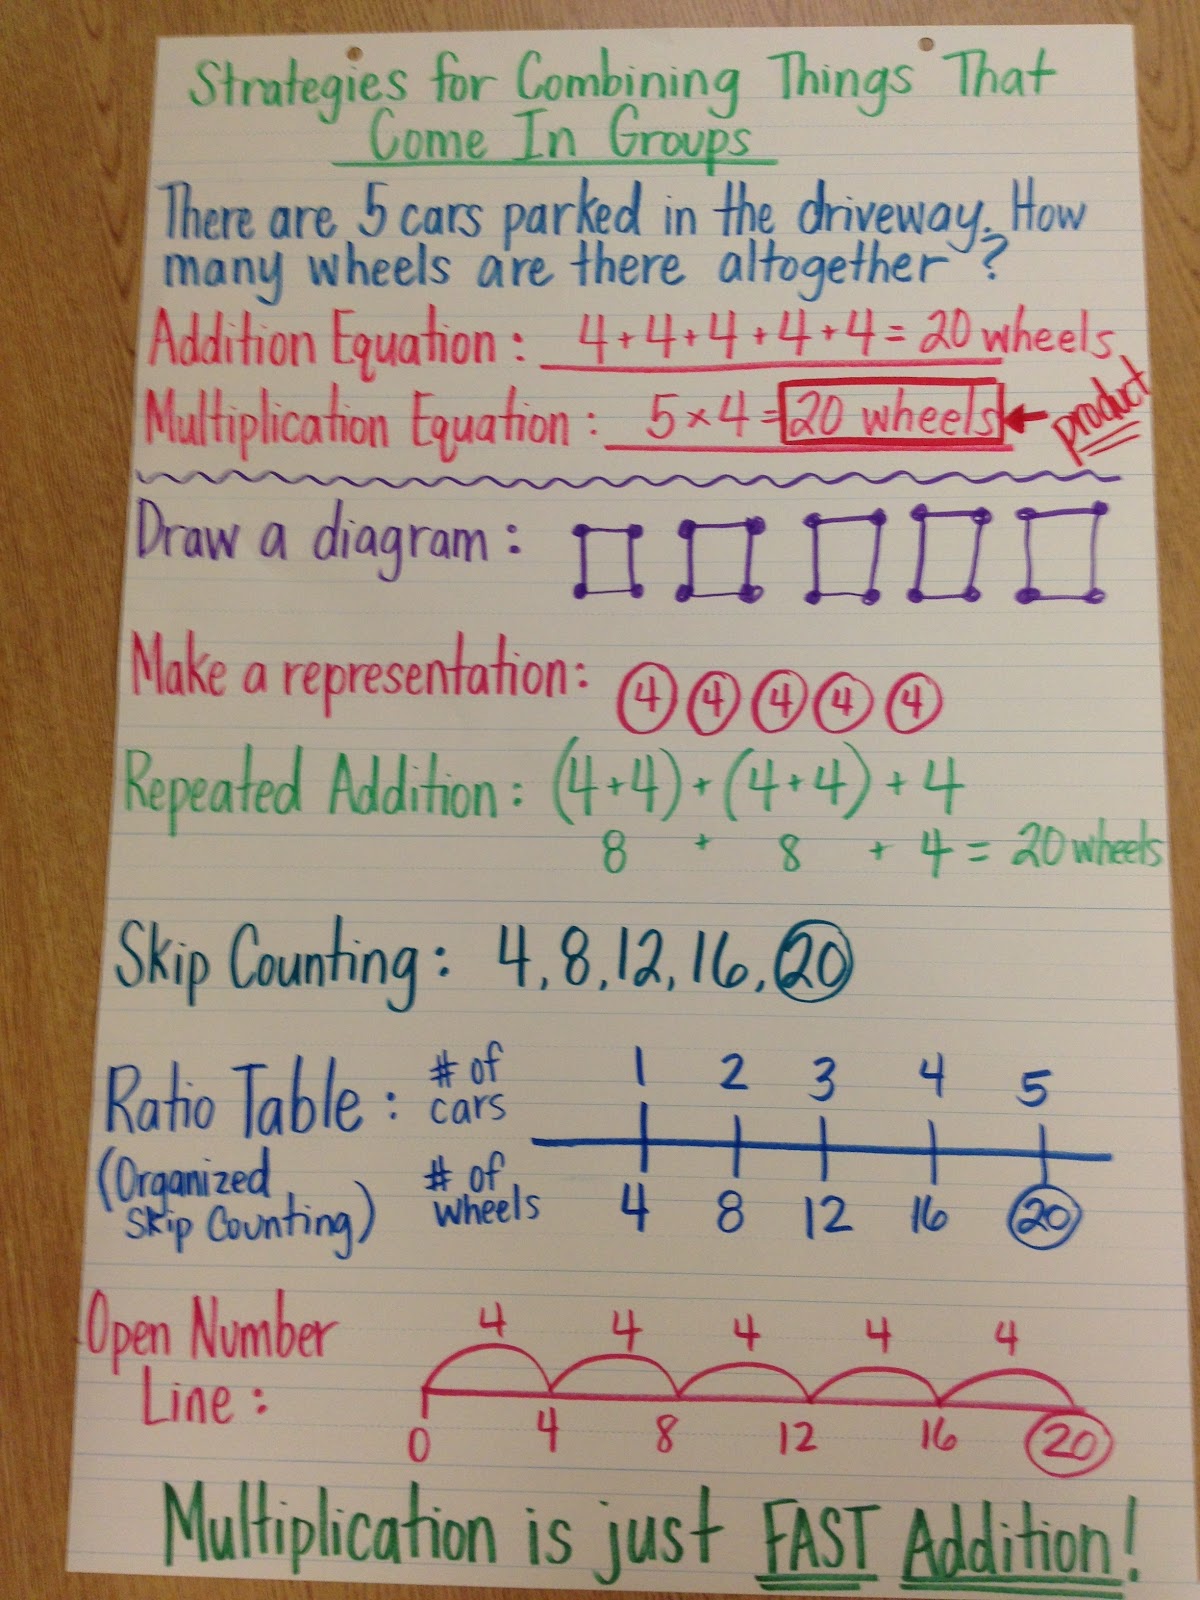 Strategies for Combining Things That
Come In Groups
There are 5 cars parked in the driveway. How
many wheels are there altogether?
Addition Equation: 4+4+4+4+4=20 wheels
Multiplication Equation: 5×4=20 wheels ← product
Draw a diagram:
Make a representation: 4 4 4 4 4
Repeated Addition: (4+4)+(4+4)+4
8 + 8 + 4 = 20 wheels
Skip Counting: 4, 8, 12, 16, 20
Ratio Table: # of cars 1 2 3 4 5
(Organized Skip Counting) # of wheels 4 8 12 16 20
4 4 4 4 4
Open Number
Line:
0 4 8 12 16 20
Multiplication is just FAST Addition!